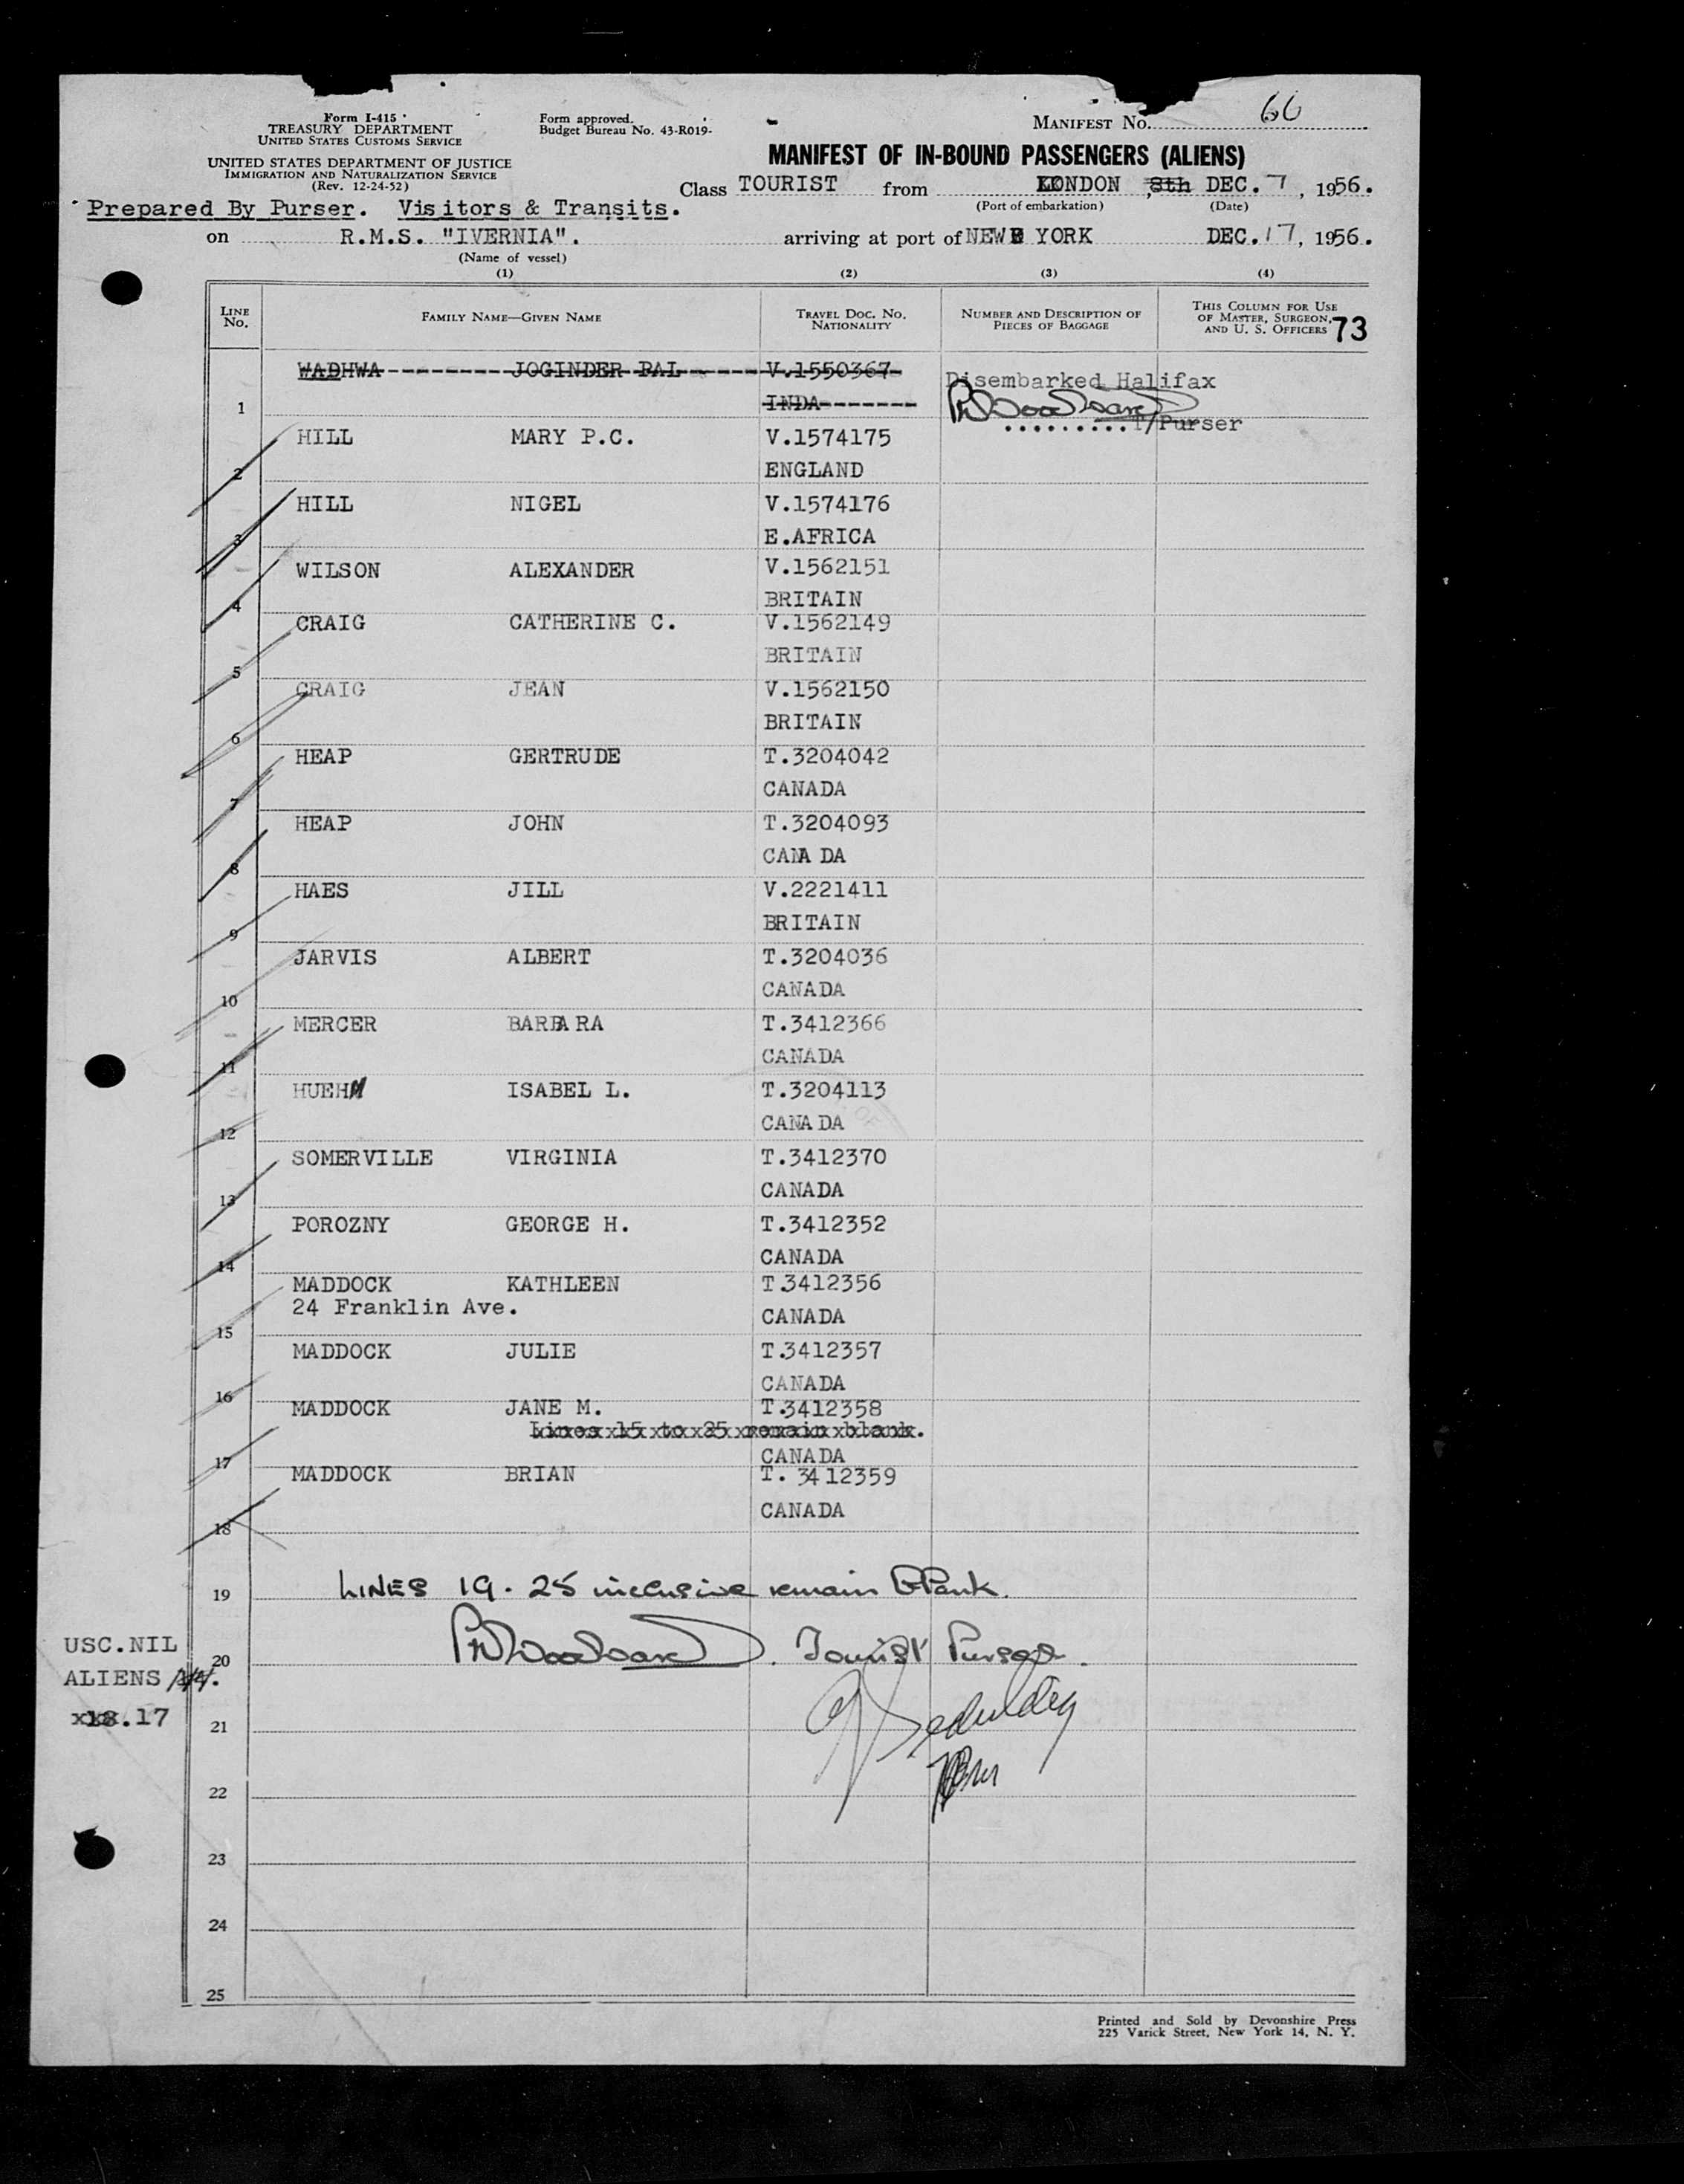 Form I-415
TREASURY DEPARTMENT
UNITED STATES CUSTOMS SERVICE
UNITED STATES DEPARTMENT OF JUSTICE
IMMIGRATION AND NATURALIZATION SERVICE
(Rev. 12-24-52)
Form approved.
Budget Bureau No. 43-R019-
MANIFEST NO. 66
MANIFEST OF IN-BOUND PASSENGERS (ALIENS)
Class TOURIST from LONDON, 8th DEC. 7, 1956.
(Port of embarkation) (Date)
Prepared By Purser. Visitors & Transits.
on R.M.S. "IVERNIA". arriving at port of NEW YORK DEC. 17, 1956.
(Name of vessel)
(1) (2) (3) (4)
LINE NO. FAMILY NAME—GIVEN NAME TRAVEL DOC. NO. NATIONALITY NUMBER AND DESCRIPTION OF PIECES OF BAGGAGE THIS COLUMN FOR USE OF MASTER, SURGEON, AND U. S. OFFICERS 73
WADHWA JOGINDER PAL V.1550367
Disembarked Halifax
1 INDA
T/Purser
HILL MARY P.C. V.1574175
2 ENGLAND
HILL NIGEL V.1574176
3 E.AFRICA
WILSON ALEXANDER V.1562151
4 BRITAIN
CRAIG CATHERINE C. V.1562149
5 BRITAIN
CRAIG JEAN V.1562150
6 BRITAIN
HEAP GERTRUDE T.3204042
7 CANADA
HEAP JOHN T.3204093
8 CANA DA
HAES JILL V.2221411
9 BRITAIN
JARVIS ALBERT T.3204036
10 CANADA
MERCER BARBARA T.3412366
11 CANADA
HUEHN ISABEL L. T.3204113
12 CANA DA
SOMERVILLE VIRGINIA T.3412370
13 CANADA
POROZNY GEORGE H. T.3412352
14 CANADA
MADDOCK KATHLEEN T.3412356
24 Franklin Ave.
15 CANADA
MADDOCK JULIE T.3412357
16 CANADA
MADDOCK JANE M. T.3412358
Lines 15 to 25 remain blank.
17 CANADA
MADDOCK BRIAN T.3412359
18 CANADA
19 LINES 19-25 inclusive remain blank.
USC.NIL
20 Tourist Purser.
ALIENS
18.17
21
22
23
24
25
Printed and Sold by Devonshire Press
225 Varick Street, New York 14, N. Y.